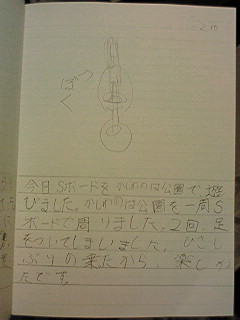 2.10
ぼく
今日Sボードをかしわのは公園で遊
びました。かしわのは公園を一周S
ボードで周りました。2回、足
をついてしまいました。ひさし
ぶりの乗たから、楽しかっ
たです。